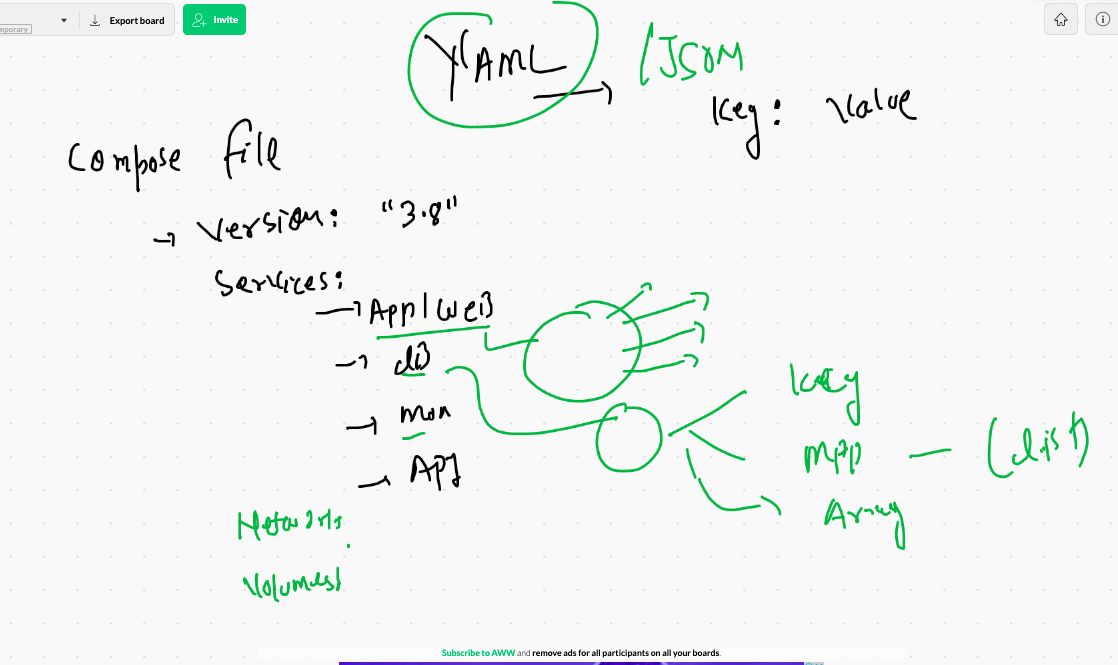 mporary
Export board
Invite
YAML
(JSON
Key: Value
Compose file
Version: "3.8"
Services:
App/WEB
dB
mon
API
Key
Map
(dist)
Array
Networks
Volumes
Subscribe to AWW and remove ads for all participants on all your boards.